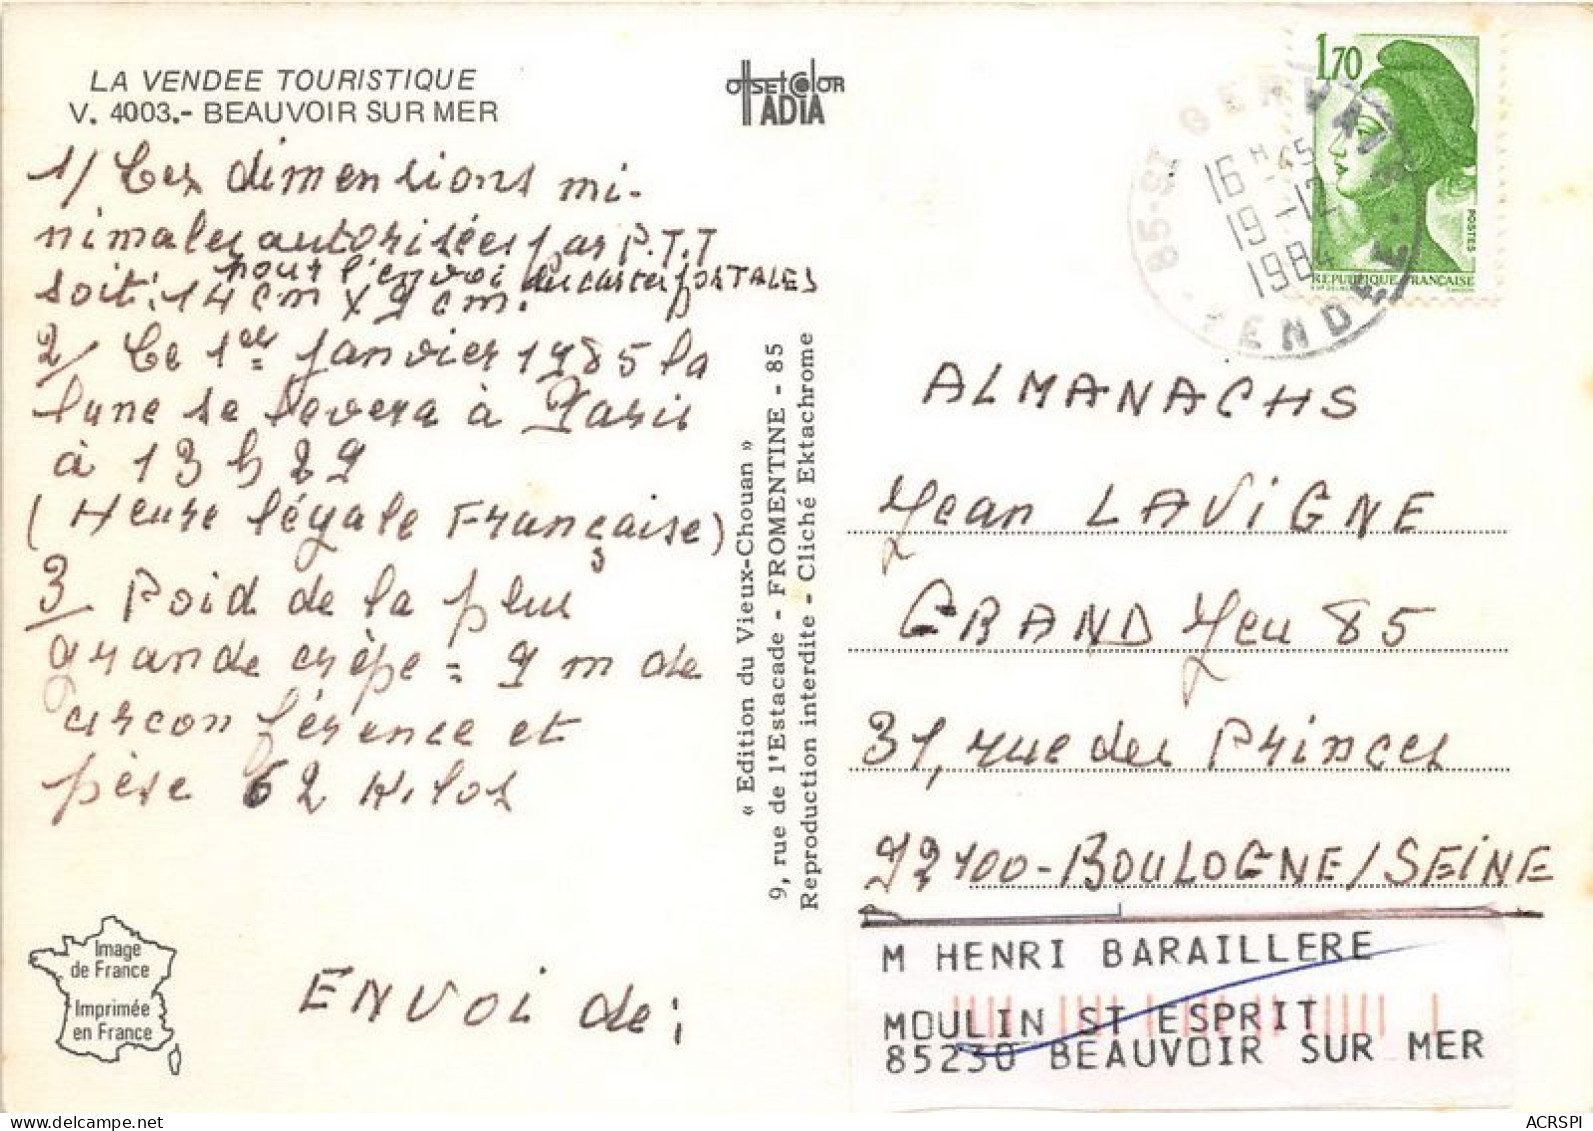 LA VENDEE TOURISTIQUE
V. 4003.- BEAUVOIR SUR MER
OffSETCOlOR
TADIA
1/ Les dimensions mi-
nimales autorisées par P.T.T
pour l'envoi des cartes POSTALES
soit: 14 cm x 9 cm.
2/ Le 1er janvier 1985 la
lune se levera à Paris
à 13 h 29
(Heure légale Française)
3 Poid de la plus
grande crêpe = 9 m de
circonférence et
pèse 62 Kilos
Image
de France
Imprimée
en France
ENVOI de:
« Edition du Vieux-Chouan »
9, rue de l'Estacade - FROMENTINE - 85
Reproduction interdite - Cliché Ektachrome
85-ST GERVAIS
16 H 45
19 -12
1984
VENDEE
1,70
POSTES
REPUBLIQUE FRANÇAISE
ALMANACHS
Jean LAVIGNE
GRAND Jeu 85
31, rue des Princes
92100-BOULOGNE/SEINE
M HENRI BARAILLERE
MOULIN ST ESPRIT
85230 BEAUVOIR SUR MER
ACRSPI